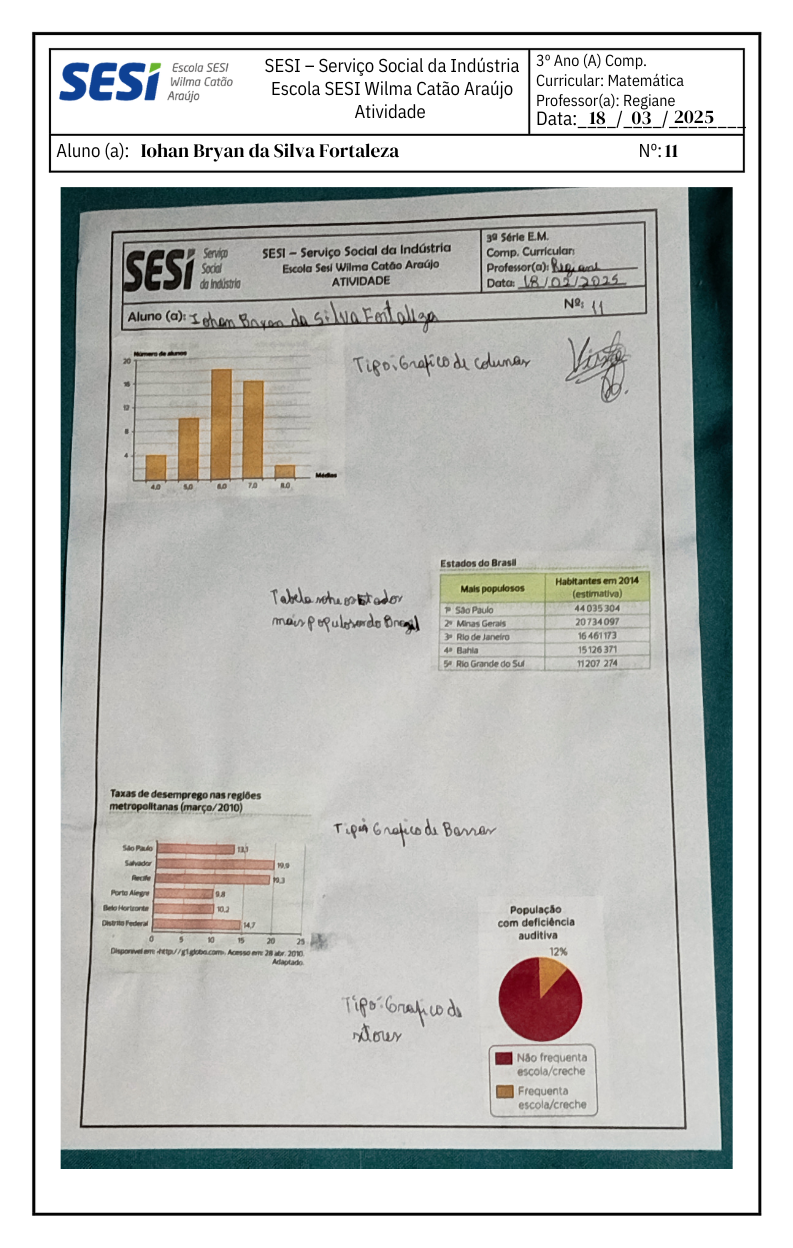 SESI
Escola SESI
Wilma Catão
Araújo
SESI – Serviço Social da Indústria
Escola SESI Wilma Catão Araújo
Atividade
3º Ano (A) Comp.
Curricular: Matemática
Professor(a): Regiane
Data: 18 / 03 / 2025
Aluno (a): Iohan Bryan da Silva Fortaleza Nº: 11
SESI
Serviço
Social
da Indústria
SESI – Serviço Social da Indústria
Escola Sesi Wilma Catão Araújo
ATIVIDADE
3ª Série E.M.
Comp. Curricular:
Professor(a): Regiane
Data: 18/02/2025
Aluno (a): Iohan Bryan da Silva Fortaleza
Nº: 11
Número de alunos
20
16
12
8
4
4,0 5,0 6,0 7,0 8,0
Médias
Tipo: Grafico de colunas
Tabela sobre os Estados
mais populosos do Brasil
Estados do Brasil
Mais populosos Habitantes em 2014
(estimativa)
1º São Paulo 44 035 304
2º Minas Gerais 20 734 097
3º Rio de Janeiro 16 461 173
4º Bahia 15 126 371
5º Rio Grande do Sul 11 207 274
Taxas de desemprego nas regiões
metropolitanas (março/2010)
São Paulo 13,1
Salvador 19,9
Recife 19,3
Porto Alegre 9,8
Belo Horizonte 10,2
Distrito Federal 14,7
0 5 10 15 20 25
Disponível em: <http://g1.globo.com>. Acesso em: 28 abr. 2010.
Adaptado.
Tipo: Grafico de Barras
População
com deficiência
auditiva
12%
Não frequenta
escola/creche
Frequenta
escola/creche
Tipo: Grafico de
setores